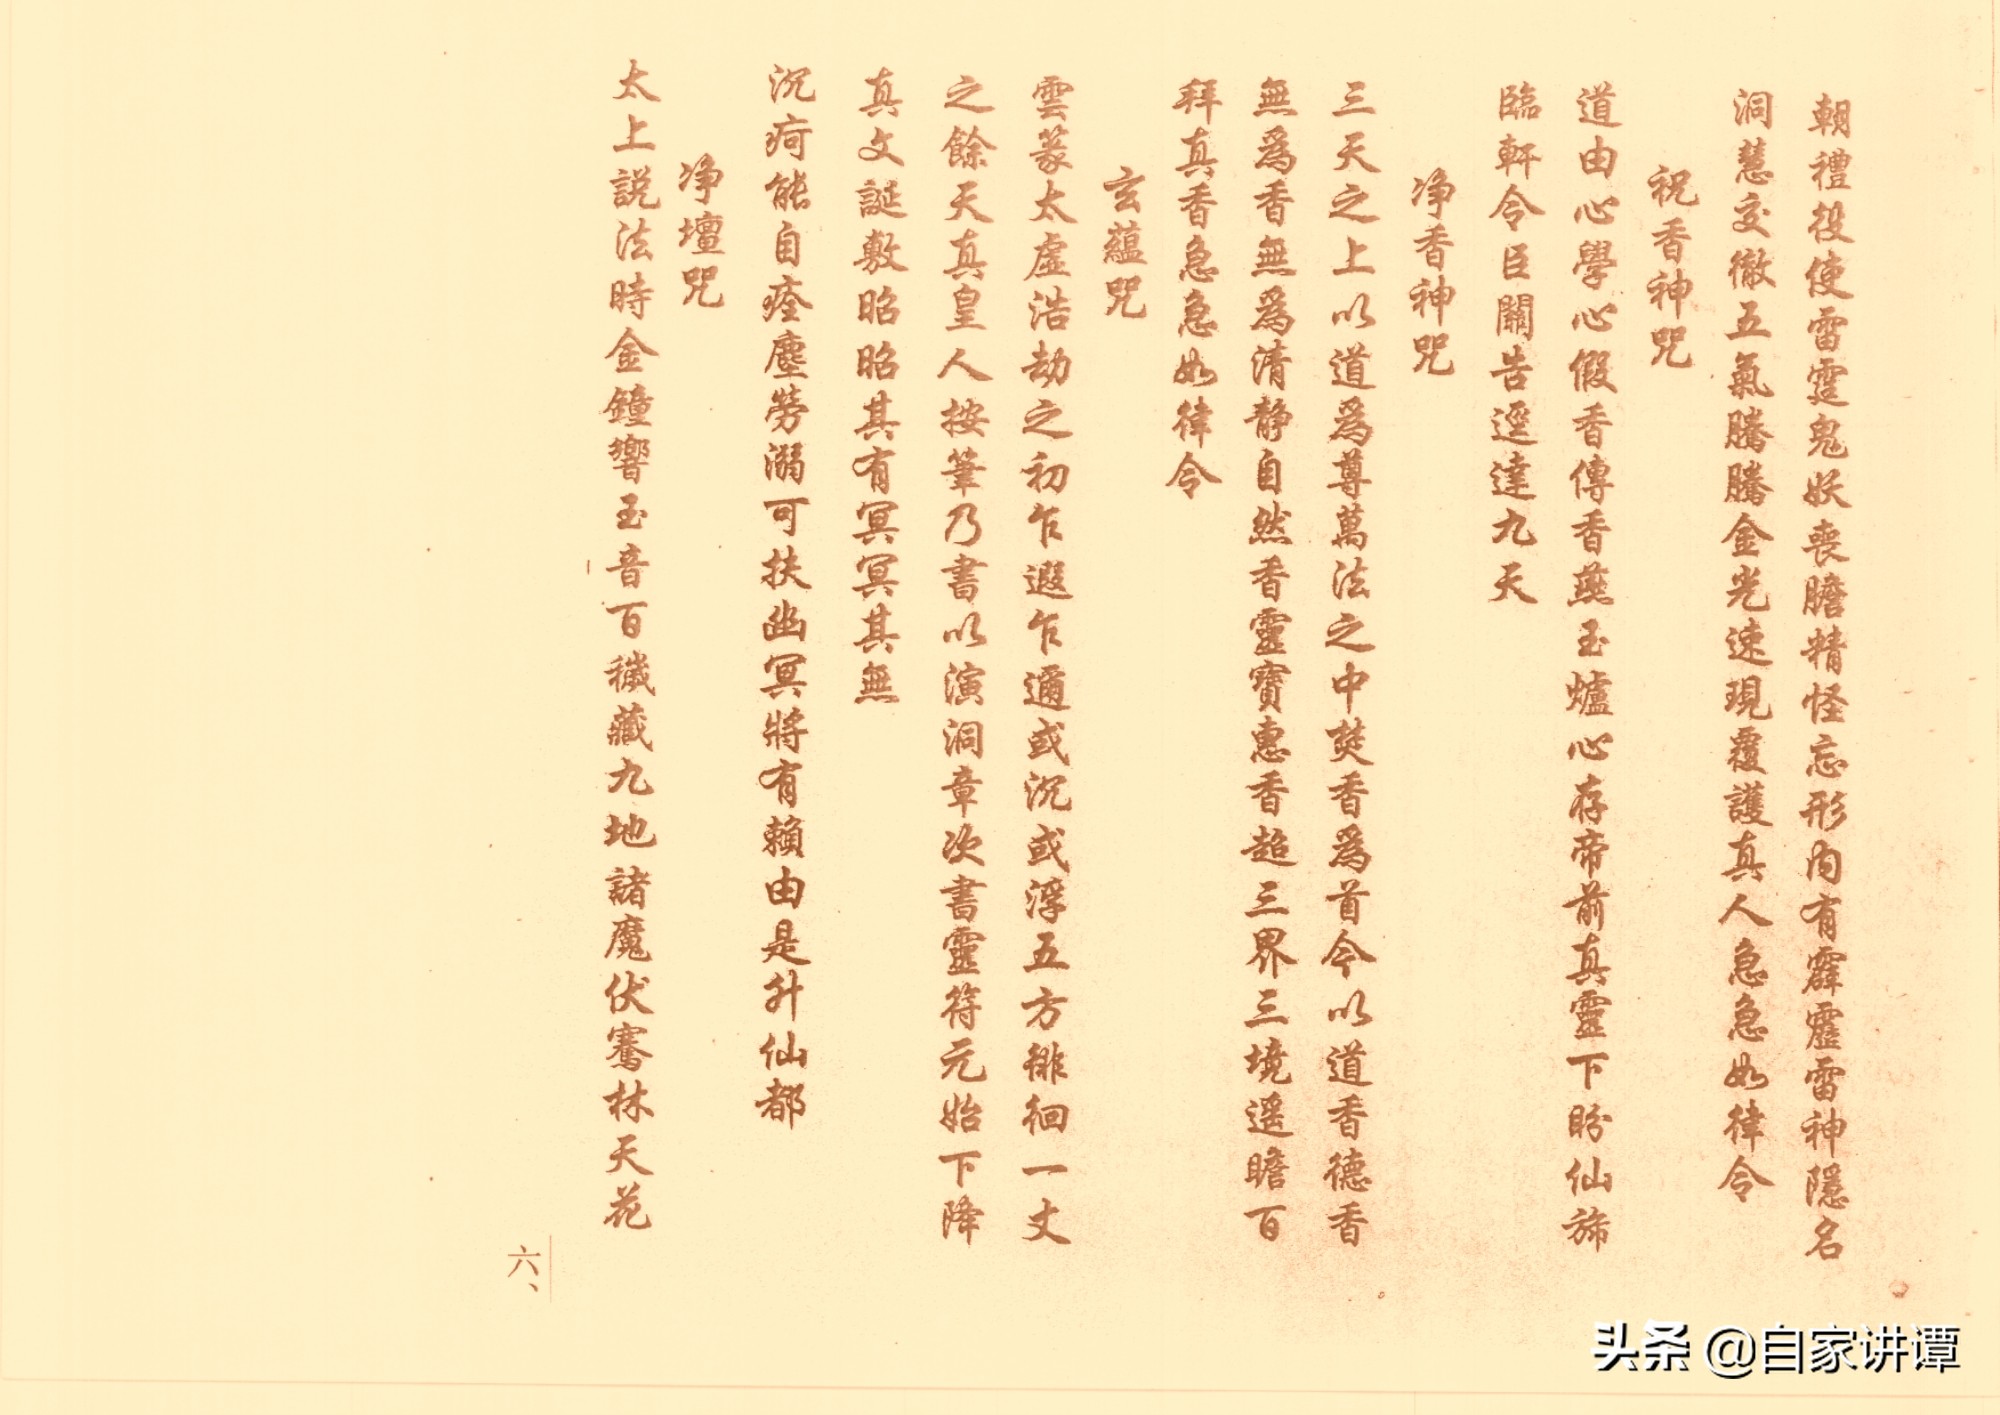 朝禮役使雷霆鬼妖喪膽精怪忘形内有霹靂雷神隱名
洞慧交徹五氣騰騰金光速現覆護真人急急如律令
祝香神咒
道由心學心假香傳香爇玉爐心存帝前真靈下盼仙旆
臨軒令臣關告逕達九天
净香神咒
三天之上以道爲尊萬法之中焚香爲首今以道香德香
無爲香無爲清静自然香靈寶惠香超三界三境遥瞻百
拜真香急急如律令
玄蘊咒
雲篆太虚浩劫之初乍乍遐乍適或沉或浮五方徘徊一丈
之餘天真皇人按筆乃書以演洞章次書靈符元始下降
真文誕敷昭昭其有冥冥其無
沉疴能自痊塵勞溺可扶幽冥將有賴由是升仙都
净壇咒
太上説法時金鐘響玉音百穢藏九地諸魔伏騫林天花
六、
头条 @自家讲谭